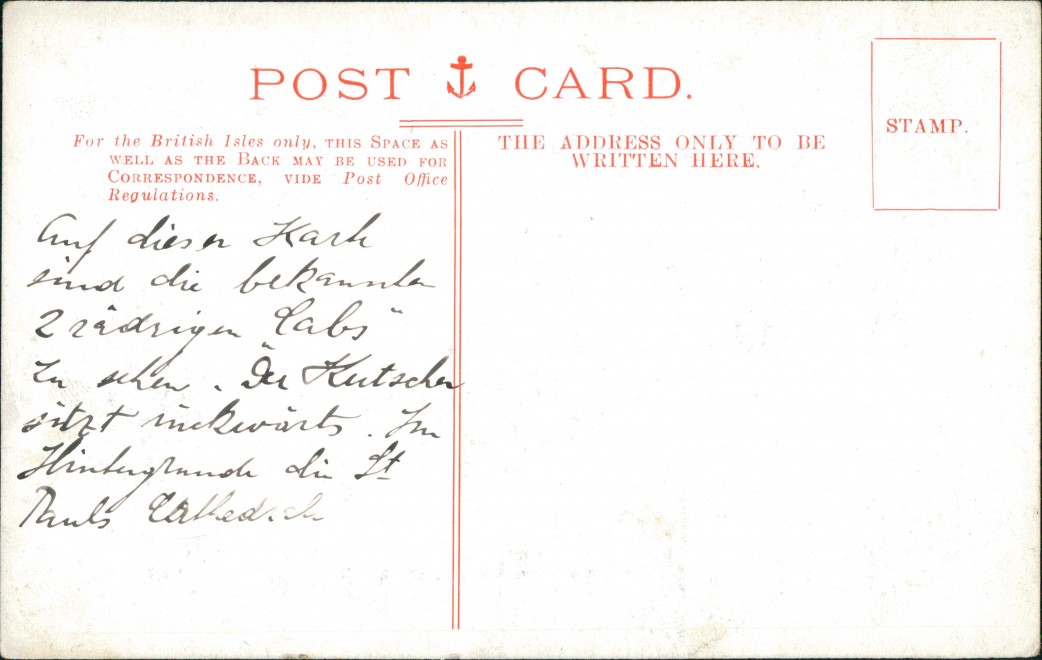 POST CARD.
For the British Isles only, THIS SPACE AS
WELL AS THE BACK MAY BE USED FOR
CORRESPONDENCE, VIDE Post Office
Regulations.
THE ADDRESS ONLY TO BE
WRITTEN HERE.
STAMP.
Auf dieser Karte
sind die bekannten
2 rädrigen "Cabs"
zu sehen. Der Kutscher
sitzt rückwärts. Im
Hintergrunde die St
Pauls Cathedrale